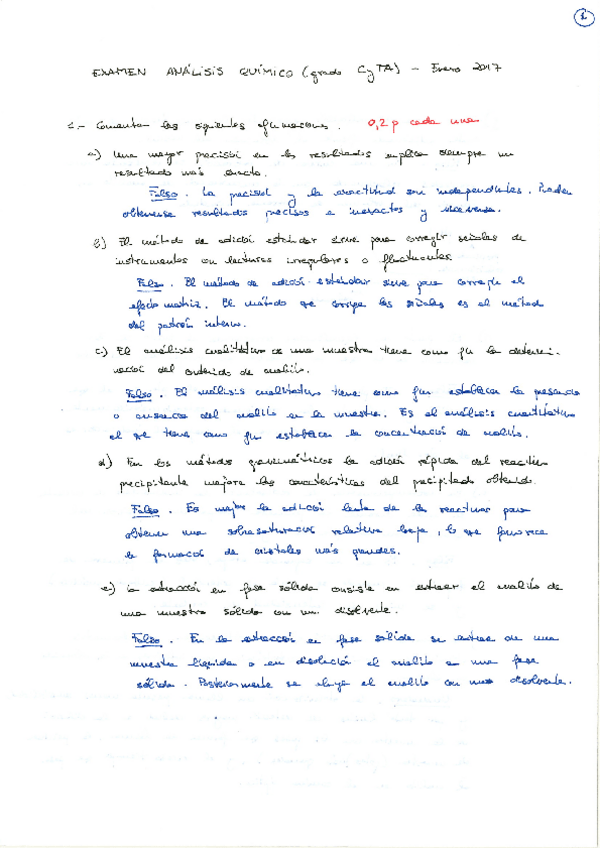 1
EXAMEN ANÁLISIS QUÍMICO (grado CyTA) - Enero 2017
1.- Comentar las siguientes afirmaciones. 0,2 p cada una
a) Una mayor precisión en los resultados implica siempre un
resultado más exacto.
Falso. La precisión y la exactitud son independientes. Pueden
obtenerse resultados precisos e inexactos y viceversa.
b) El método de adición estándar sirve para corregir señales de
instrumentos con lecturas irregulares o fluctuantes.
Falso. El método de adición estándar sirve para corregir el
efecto matriz. El método que corrige las señales es el método
del patrón interno.
c) El análisis cualitativo de una muestra tiene como fin la determi-
nación del contenido de analito.
Falso. El análisis cualitativo tiene como fin establecer la presencia
o ausencia del analito en la muestra. Es el análisis cuantitativo
el que tiene como fin establecer la concentración de analito.
d) En los métodos gravimétricos la adición rápida del reactivo
precipitante mejora las características del precipitado obtenido.
Falso. Es mejor la adición lenta de los reactivos para
obtener una sobresaturación relativa baja, lo que favorece
la formación de cristales más grandes.
e) La extracción en fase sólida consiste en extraer el analito de
una muestra sólida con un disolvente.
Falso. En la extracción en fase sólida se extrae de una
muestra líquida o en disolución el analito a una fase
sólida. Posteriormente se eluye el analito con un disolvente.